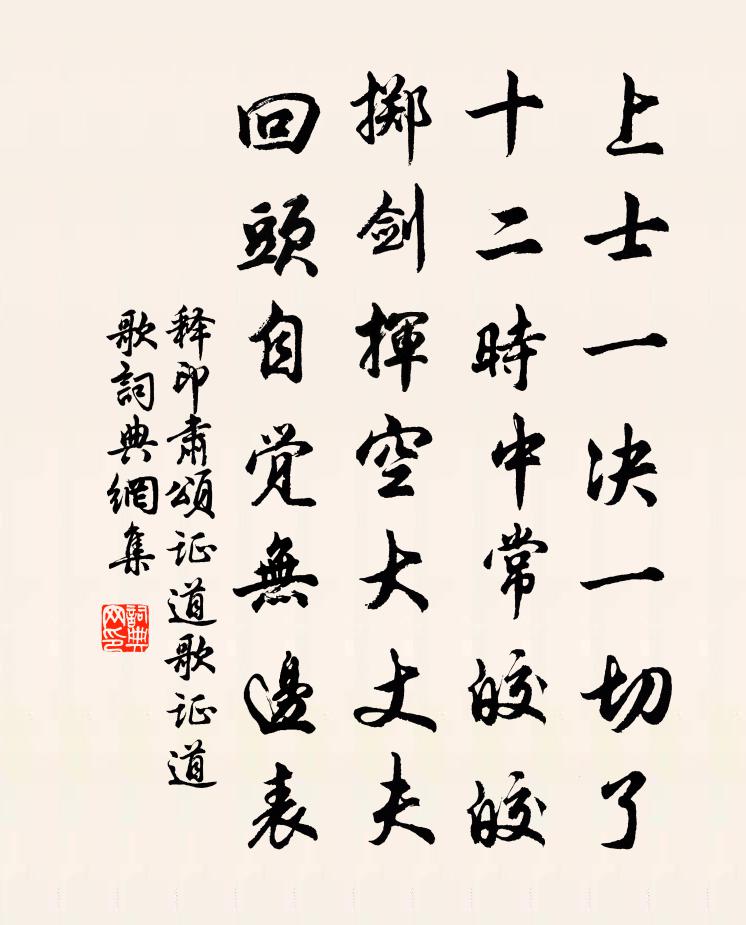 上士一决一切了
十二時中常皎皎
掷剑揮空大丈夫
回頭自觉無邊表
释印肃頌证道歌证道
歌詞典網集
詞典网印